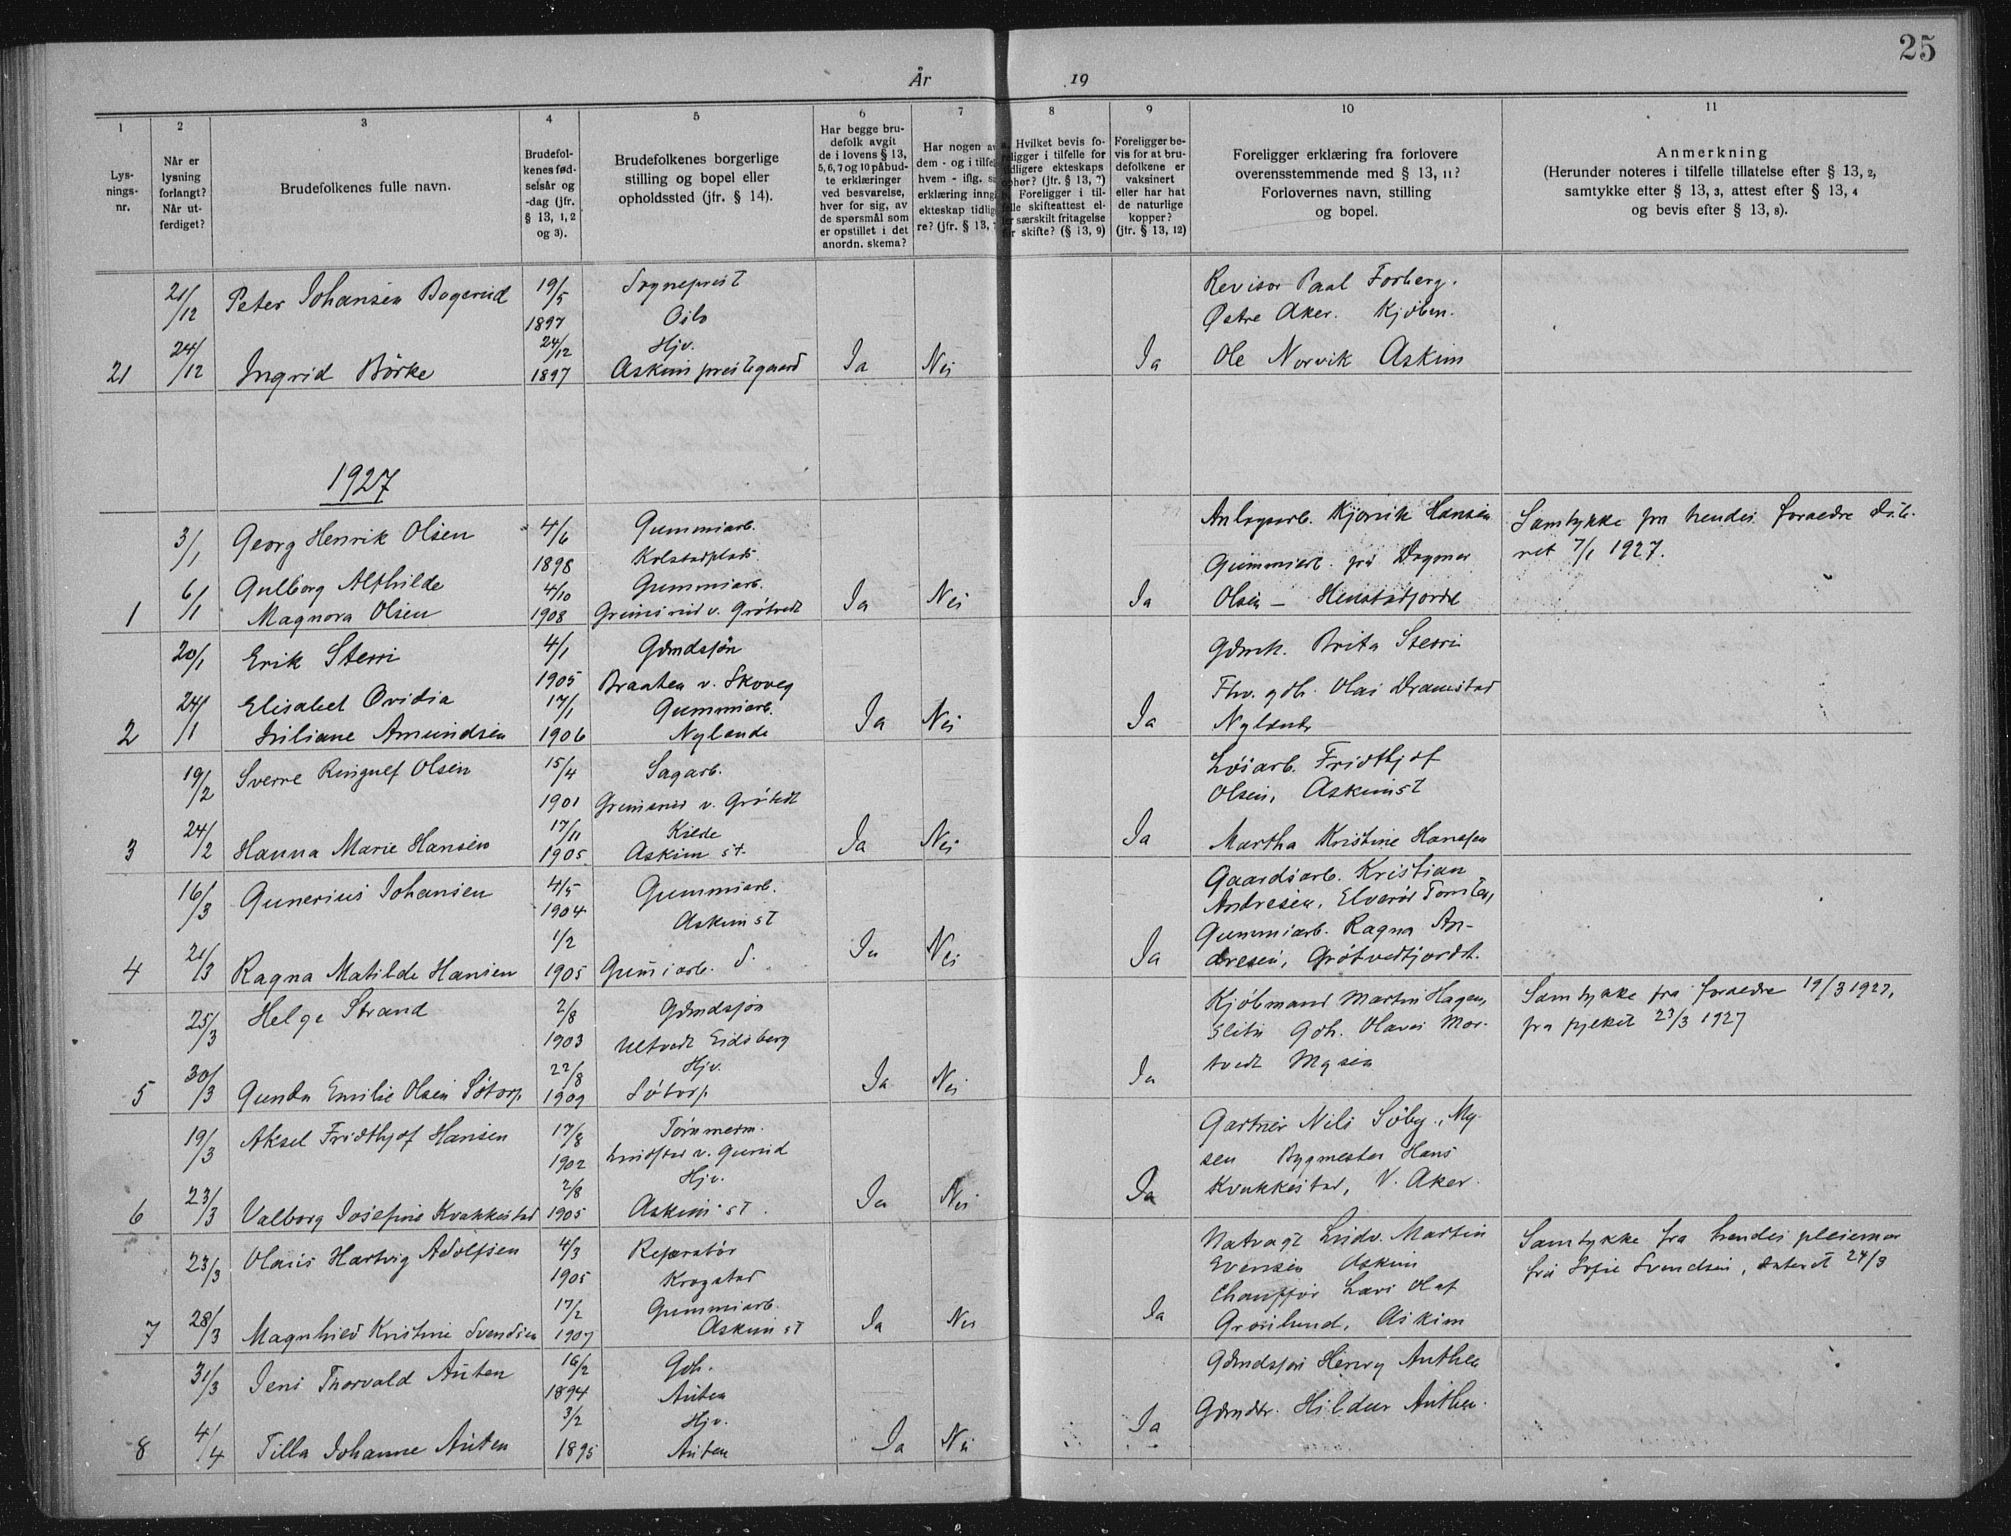 25
År 19
1 2 3 4 5 6 7 8 9 10 11
Lys-
nings-
nr.
Når er
lysning
forlangt?
Når ut-
ferdiget?
Brudefolkenes fulle navn.
Brudefol-
kenes fød-
selsår og
-dag (jfr.
§ 13, 1, 2
og 3).
Brudefolkenes borgerlige
stilling og bopel eller
opholdssted (jfr. § 14).
Har begge bru-
defolk avgit
de i lovens § 13,
5, 6, 7 og 10 påbud-
te erklæringer
ved besvarelse,
hver for sig, av
de spørsmål som
er opstillet i det
anordn. skema?
Har nogen av
dem - og i tilfel
hvem - iflg. s
erklæring inng
ekteskap tidlig
re? (jfr. § 13,
Hvilket bevis fo-
religger i tilfelle for
idligere ekteskaps
ophør? (jfr. § 13, 7)
Foreligger i til-
felle skifteattest el-
ler særskilt fritagelse
for skifte? (§ 13, 9)
Foreligger be-
vis for at bru-
defolkene er
vaksinert
eller har hat
de naturlige
kopper?
(jfr. § 13, 12)
Foreligger erklæring fra forlovere
overensstemmende med § 13, 11?
Forlovernes navn, stilling
og bopel.
Anmerkning
(Herunder noteres i tilfelle tillatelse efter § 13, 2,
samtykke efter § 13, 3, attest efter § 13, 4
og bevis efter § 13, 8).
21/12 Peter Johansen Bogerud 19/5 Sogneprest Revisor Paal Forberg.
1897 Oslo Østre Aker. Kjøbm.
24/12 24/12 Hjv.
21 Ingrid Börke 1897 Askim prestegaard Ja Nei Ja Ole Norvik Askim
1927
3/1 Georg Henrik Olsen 4/6 Gummiarb. Hansen Samtykke fra hendes foraedre
1898 Kolstadplads Gummiarb. Dagmar 7/1 1927.
6/1 Gulborg Alfhilde 4/10 Gummiarb.
1 Magnora Olsen 1908 Grimsrud v. Grötvedt Ja Nei Ja Olsen —
20/1 Erik Sterri 4/1 Gdmdsjön Gdmk. Brita Sterri
1905 Braaten v. Skoveg
24/1 Elisabet Ovidia 17/1 Gummiarb. Fhv. gdb. Olai Dramstad
2 Juliane Amundsen 1906 Nylende Ja Nei Ja Nylende
19/2 Sverre Ringulf Olsen 15/4 Sagarb. Løsarb. Fridthjof
1901 Grimsrud v. Grötvedt Olsen, Askim st
24/2 17/11
3 Hanna Marie Hansen 1905 Askim st. Ja Nei Ja Martha Kristine Hansen
16/3 Gunerius Johansen 4/5 Gummiarb. Gaardsarb. Kristian
1904 Askim st Andresen,
21/3 1/2 Gummiarb. Ragna An-
4 Ragna Matilde Hansen 1905 Gumiarb. S. Ja Nei Ja dresen, Grötvedtjordet.
25/3 Helge Strand 2/8 Gdmdsjön Kjöbmand Martin Hagen, Samtykke fra foraedre 19/3 1927,
1903 Ultvedt Eidsberg Slitu Gdb. Olaves Mor- fra fylket 23/3 1927
30/3 22/8 Hjv. tvedt Mysen
5 Gunda Emilie Olsen Sötorp 1909 Sötorp Ja Nei Ja
19/3 Aksel Fridthjof Hansen 17/8 Tømmerm. Gartner Nils Söby, My-
1902 v. Gunrud sen Bygmester Hans
23/3 2/8 Hjv.
6 Valborg Josefine Kvakkestad 1905 Askim st. Ja Nei Ja Kvakkestad, V. Aker.
23/3 Olaus Hartvig Adolfsen 4/3 Reparatør Natvagt Ludv. Martin Samtykke fra hendes pleiemor
1905 Krogstad Evensen Askim fru Sofie Svendsen, datert 24/3
28/3 17/2 Gummiarb. Chauffør Lars Olaf
7 Magnhild Kristine Svendsen 1907 Askim st Ja Nei Ja Grönlund, Askim
31/3 Jens Thorvald Auten 16/2 Gdb. Gdmdsjön Henry Authen
1894 Auten
4/4 3/2 Hjv. Gdmdtr. Hildur Authen.
8 Tilla Johanne Auten 1895 Auten Ja Nei Ja